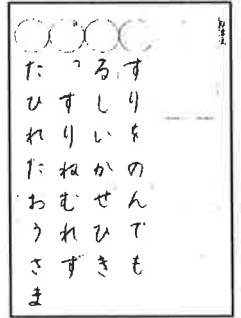 すりをのんでも
るしいかせひき
っすりねむれず
たひれたおうさま